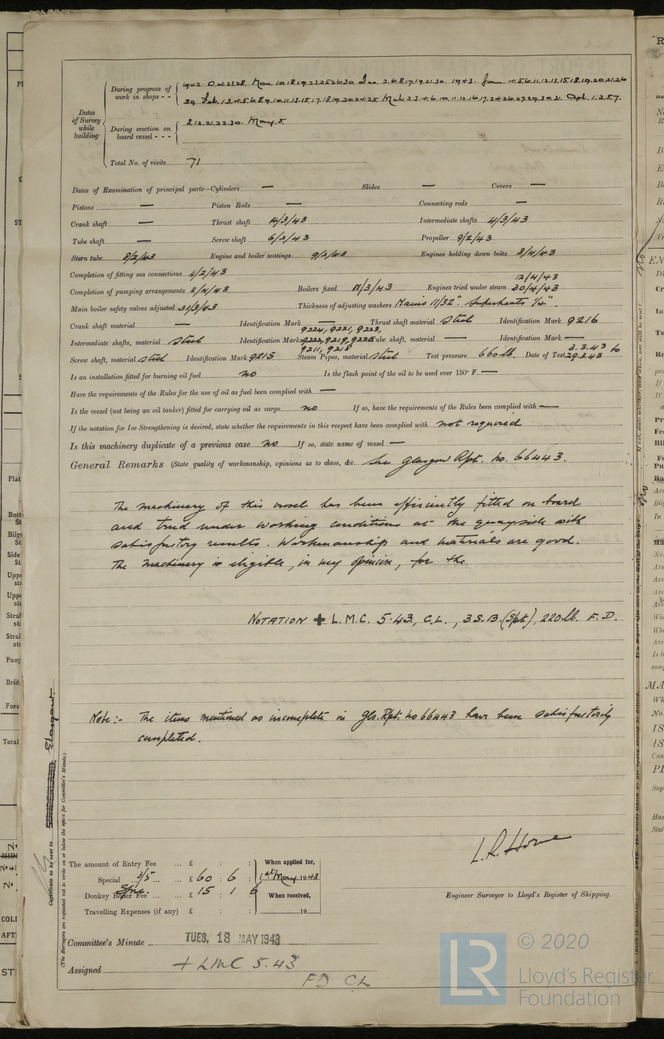 Dates of Survey while building
During progress of work in shops - -
During erection on board vessel - - -
8.12.21.22.30. May. 5.
Total No. of visits 71
Dates of Examination of principal parts—Cylinders — Slides — Covers —
Pistons — Piston Rods — Connecting rods —
Crank shaft — Thrust shaft 4/3/43 Intermediate shafts 4/3/43
Tube shaft — Screw shaft 6/2/43 Propeller 9/2/43
Stern tube 8/2/43 Engine and boiler seatings 9/2/43 Engines holding down bolts 8/4/43
Completion of fitting sea connections 4/2/43
12/4/43
Completion of pumping arrangements 8/4/43 Boilers fixed 11/3/43 Engines tried under steam 30/4/43
Main boiler safety valves adjusted 31/3/43 Thickness of adjusting washers Mains 11/32". Superheats 1/4".
Crank shaft material — Identification Mark — Thrust shaft material Steel Identification Mark 9216
9224, 9221, 9223,
Intermediate shafts, material Steel Identification Marks 9222, 9219, 9220 Tube shaft, material — Identification Mark —
9211, 9218
Screw shaft, material Steel Identification Mark 9215 Steam Pipes, material Steel Test pressure 660 lb. Date of Test 3.3.43 to 29.3.43
Is an installation fitted for burning oil fuel no Is the flash point of the oil to be used over 150° F. —
Have the requirements of the Rules for the use of oil as fuel been complied with —
Is the vessel (not being an oil tanker) fitted for carrying oil as cargo no If so, have the requirements of the Rules been complied with —
If the notation for Ice Strengthening is desired, state whether the requirements in this respect have been complied with not required
Is this machinery duplicate of a previous case no If so, state name of vessel —
General Remarks (State quality of workmanship, opinions as to class, &c. See Glasgow Rpt. no. 66443.
The machinery of this vessel has been efficiently fitted on board
and tried under working conditions at the quayside with
satisfactory results. Workmanship and materials are good.
The machinery is eligible, in my opinion, for the
NOTATION + L.M.C. 5.43, C.L., 3 S.B. (Spt), 220 lb. F.D.
Note:- The items mentioned as incomplete in Gls. Rpt. no 66443 have been satisfactorily
completed.
L. R. Horne
Engineer Surveyor to Lloyd's Register of Shipping.
The amount of Entry Fee ... £ : : When applied for,
Special 3/5 ... £ 60 : 6 : 1st May 1943
Donkey Boiler Fee ... £ 15 : 1 : 6 When received,
Travelling Expenses (if any) £ : : 19
Committee's Minute TUES. 18 MAY 1943
Assigned + LMC 5.43
FD CL
Certificate to be sent to Glasgow.
(The Surveyors are requested not to write on or below the space for Committee's Minute.)
LR © 2020
Lloyd's Register
Foundation